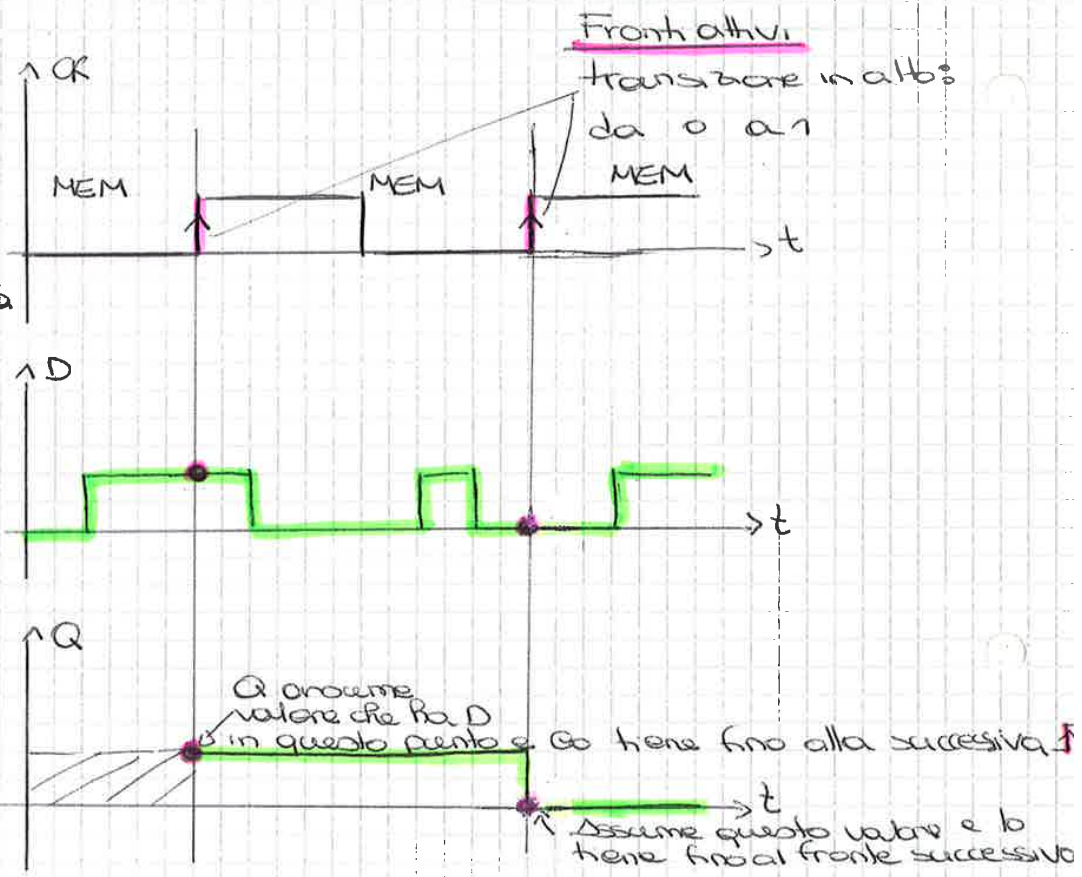 Fronti attivi
transizione in alto:
da 0 a 1
CK
MEM
MEM
MEM
t
a
D
t
Q
Q assume
valore che ha D
in questo punto e lo tiene fino alla successiva ↑
t
Assume questo valore e lo
tiene fino al fronte successivo